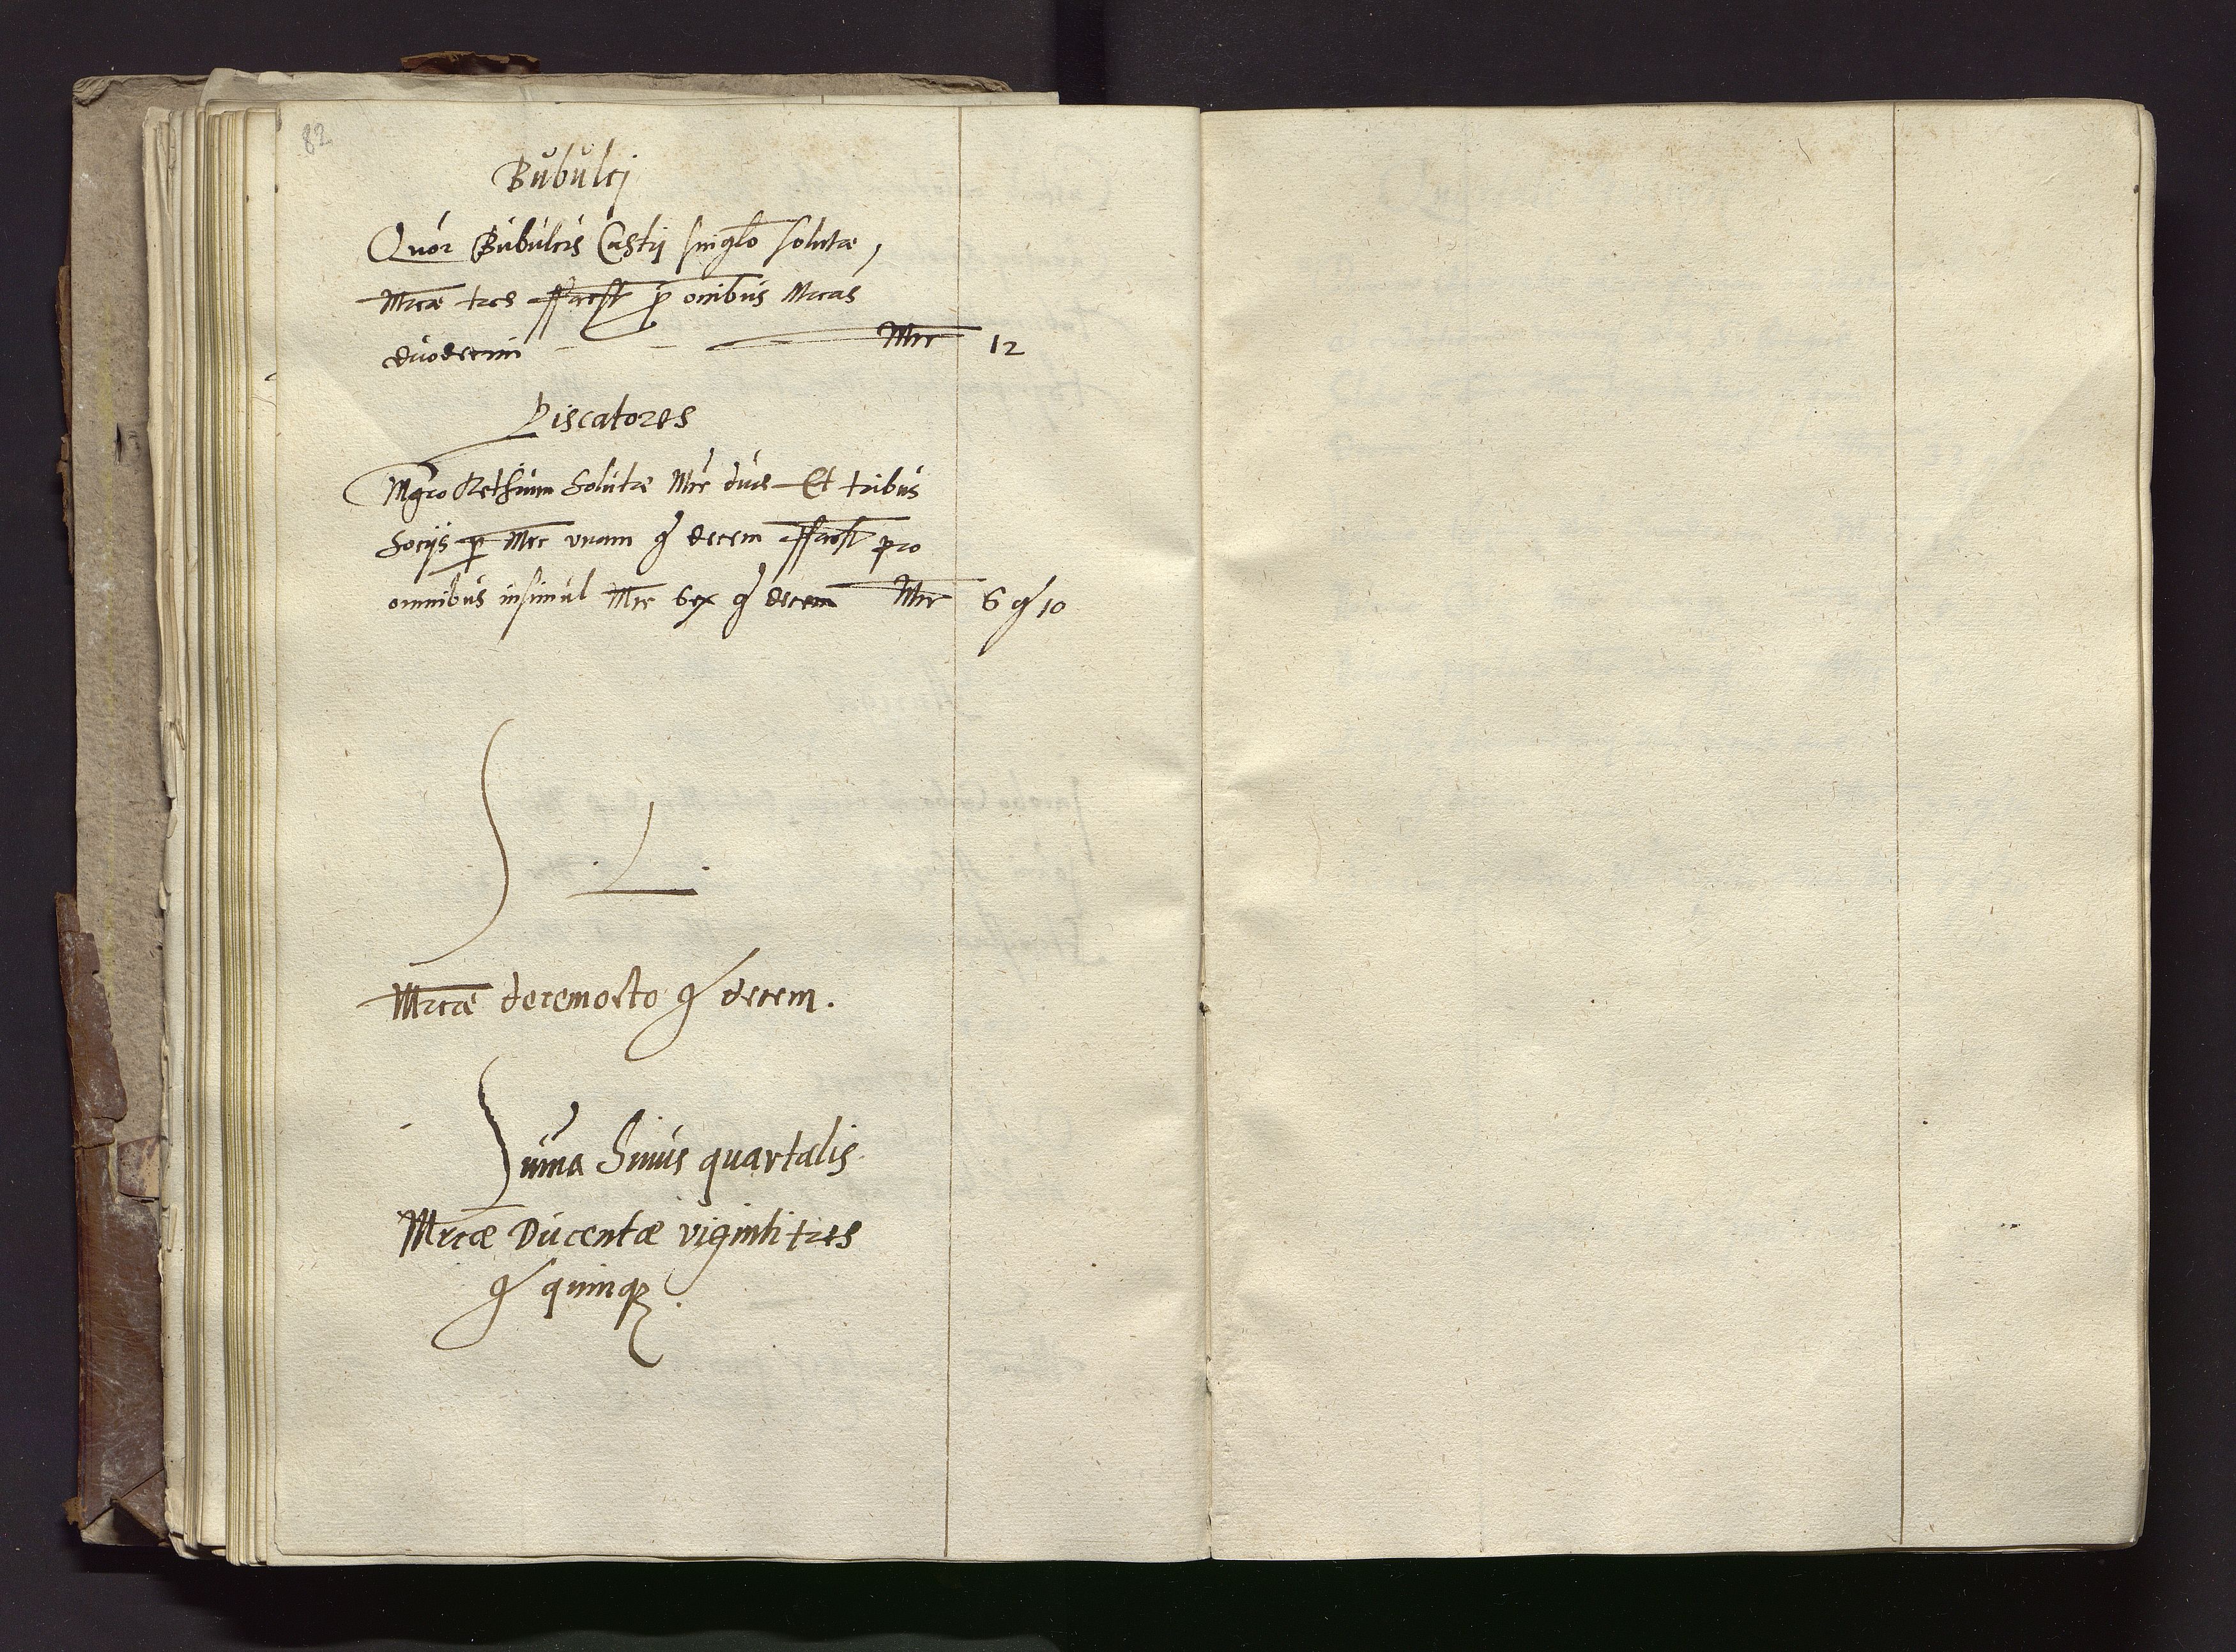 82
Bubulcj
Quor Bubulcis Castrj singlo solutæ,
Mrcæ tres ffacst p omibus Mrcas
duodecim Mrc 12
Piscatores
Mgro Rethium Solutæ Mrc duæ Et tribus
Socijs p Mrc vnam g decem ffacst pro
omnibus insimul Mrc Sex g decem Mrc 6 g 10
S L.
Mrcæ decemocto g decem.
Suma huius quartalis
Mrcæ Ducentæ viginti tres
g quinqz.